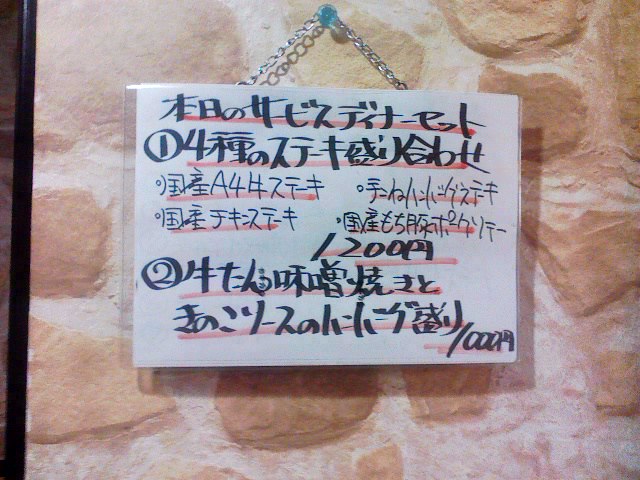 本日のサービスディナーセット
①4種のステーキ盛り合わせ
・国産A4牛ステーキ ・手ごねハンバーグステーキ
・国産チキンステーキ ・国産もち豚ポークソテー
1200円
②牛たん味噌焼きと
きのこソースのハンバーグ盛り
1000円